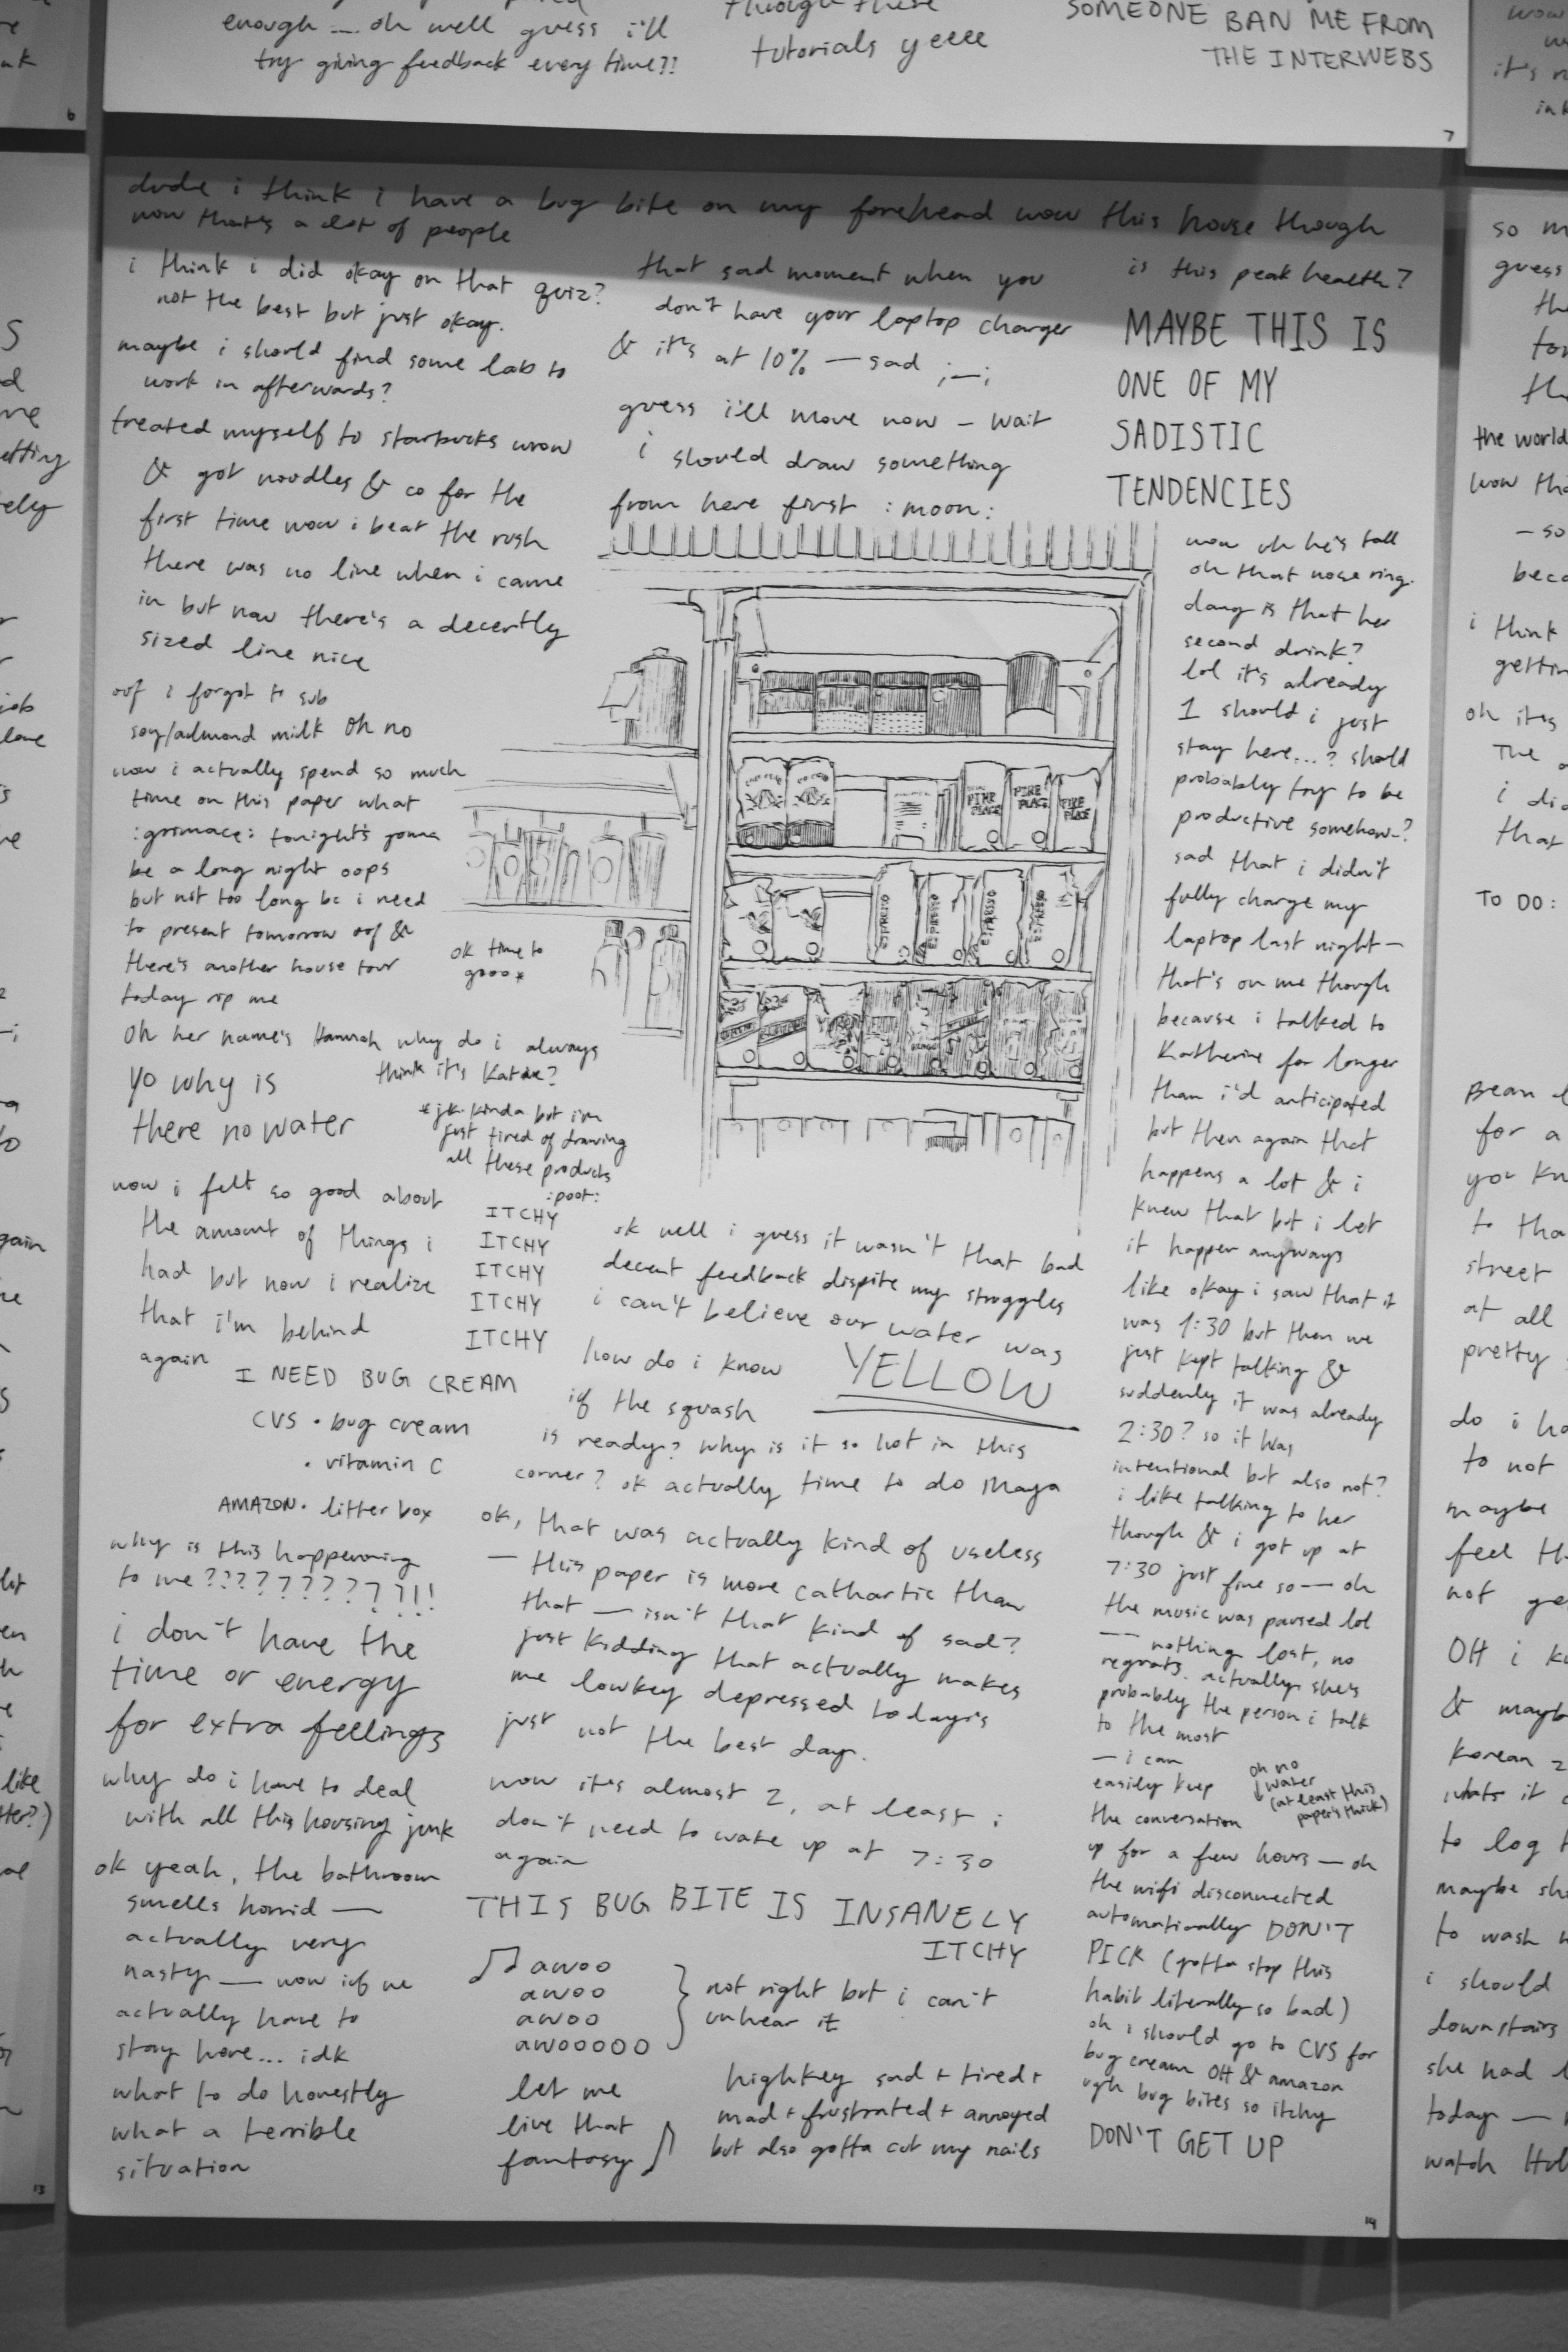 enough — oh well guess i'll
try giving feedback every time?!
through these
tutorials yeeee
SOMEONE BAN ME FROM
THE INTERWEBS
6
7
dude i think i have a bug bite on my forehead wow this house though
wow that's a lot of people
i think i did okay on that quiz?
not the best but just okay.
maybe i should find some lab to
work in afterwards?
treated myself to starbucks wow
& got noodles & co for the
first time wow i beat the rush
there was no line when i came
in but now there's a decently
sized line nice
oof i forgot to sub
soy/almond milk oh no
wow i actually spend so much
time on this paper what
:grimace: tonight's gonna
be a long night oops
but not too long bc i need
to present tomorrow oof &
there's another house tour
today rip me
oh her name's Hannah why do i always
think it's Katie?
yo why is
there no water
wow i felt so good about
the amount of things i
had but now i realize
that i'm behind
again
I NEED BUG CREAM
CVS • bug cream
• vitamin C
AMAZON • litter box
why is this happening
to me??????????!!
i don't have the
time or energy
for extra feelings
why do i have to deal
with all this housing junk
ok yeah, the bathroom
smells horrid —
actually very
nasty — wow if we
actually have to
stay here... idk
what to do honestly
what a terrible
situation
that sad moment when you
don't have your laptop charger
& it's at 10% — sad ;—;
guess i'll move now – wait
i should draw something
from here first :moon:
PIKE
PLACE
PIKE
PLACE
PIKE
PLACE
ESPRESSO
ESPRESSO
ESPRESSO
ESPRESSO
ok time to
gooo*
*jk kinda but i'm
just tired of drawing
all these products
:poot:
ITCHY
ITCHY
ITCHY
ITCHY
ITCHY
ok well i guess it wasn't that bad
decent feedback dispite my struggles
i can't believe our water was
YELLOW
how do i know
if the squash
is ready? why is it so hot in this
corner? ok actually time to do Maya
ok, that was actually kind of useless
— this paper is more cathartic than
that — isn't that kind of sad?
just kidding that actually makes
me lowkey depressed today's
just not the best day.
wow it's almost 2, at least i
don't need to wake up at 7:30
again
THIS BUG BITE IS INSANELY
ITCHY
awoo
awoo
awoo
awooooo
not right but i can't
unhear it
let me
live that
fantasy
highkey sad + tired +
mad + frustrated + annoyed
but also gotta cut my nails
is this peak health?
MAYBE THIS IS
ONE OF MY
SADISTIC
TENDENCIES
wow oh he's tall
oh that nose ring.
dang is that her
second drink?
lol it's already
1 should i just
stay here...? should
probably try to be
productive somehow–?
sad that i didn't
fully charge my
laptop last night —
that's on me though
because i talked to
Katherine for longer
than i'd anticipated
but then again that
happens a lot & i
knew that but i let
it happen anyways
like okay i saw that it
was 1:30 but then we
just kept talking &
suddenly it was already
2:30? so it was
intentional but also not?
i like talking to her
though & i got up at
7:30 just fine so — oh
the music was paused lol
— nothing lost, no
regrets. actually she's
probably the person i talk
to the most
— i can
easily keep
the conversation
up for a few hours — oh
the wifi disconnected
automatically DON'T
PICK (gotta stop this
habit literally so bad)
oh i should go to CVS for
bug cream OH & amazon
ugh bug bites so itchy
DON'T GET UP
oh no
↓ water
(at least this
paper's thick)
14
13
so
guess
the world
wow
– so
i think
oh it's
The
i did
that
TO DO:
Bean
for a
you
street
at all
pretty
do i
to not
maybe
feel
not
OH i
& maybe
Korean
what's it
to log
maybe
to wash
i should
downstairs
she had
today —
watch